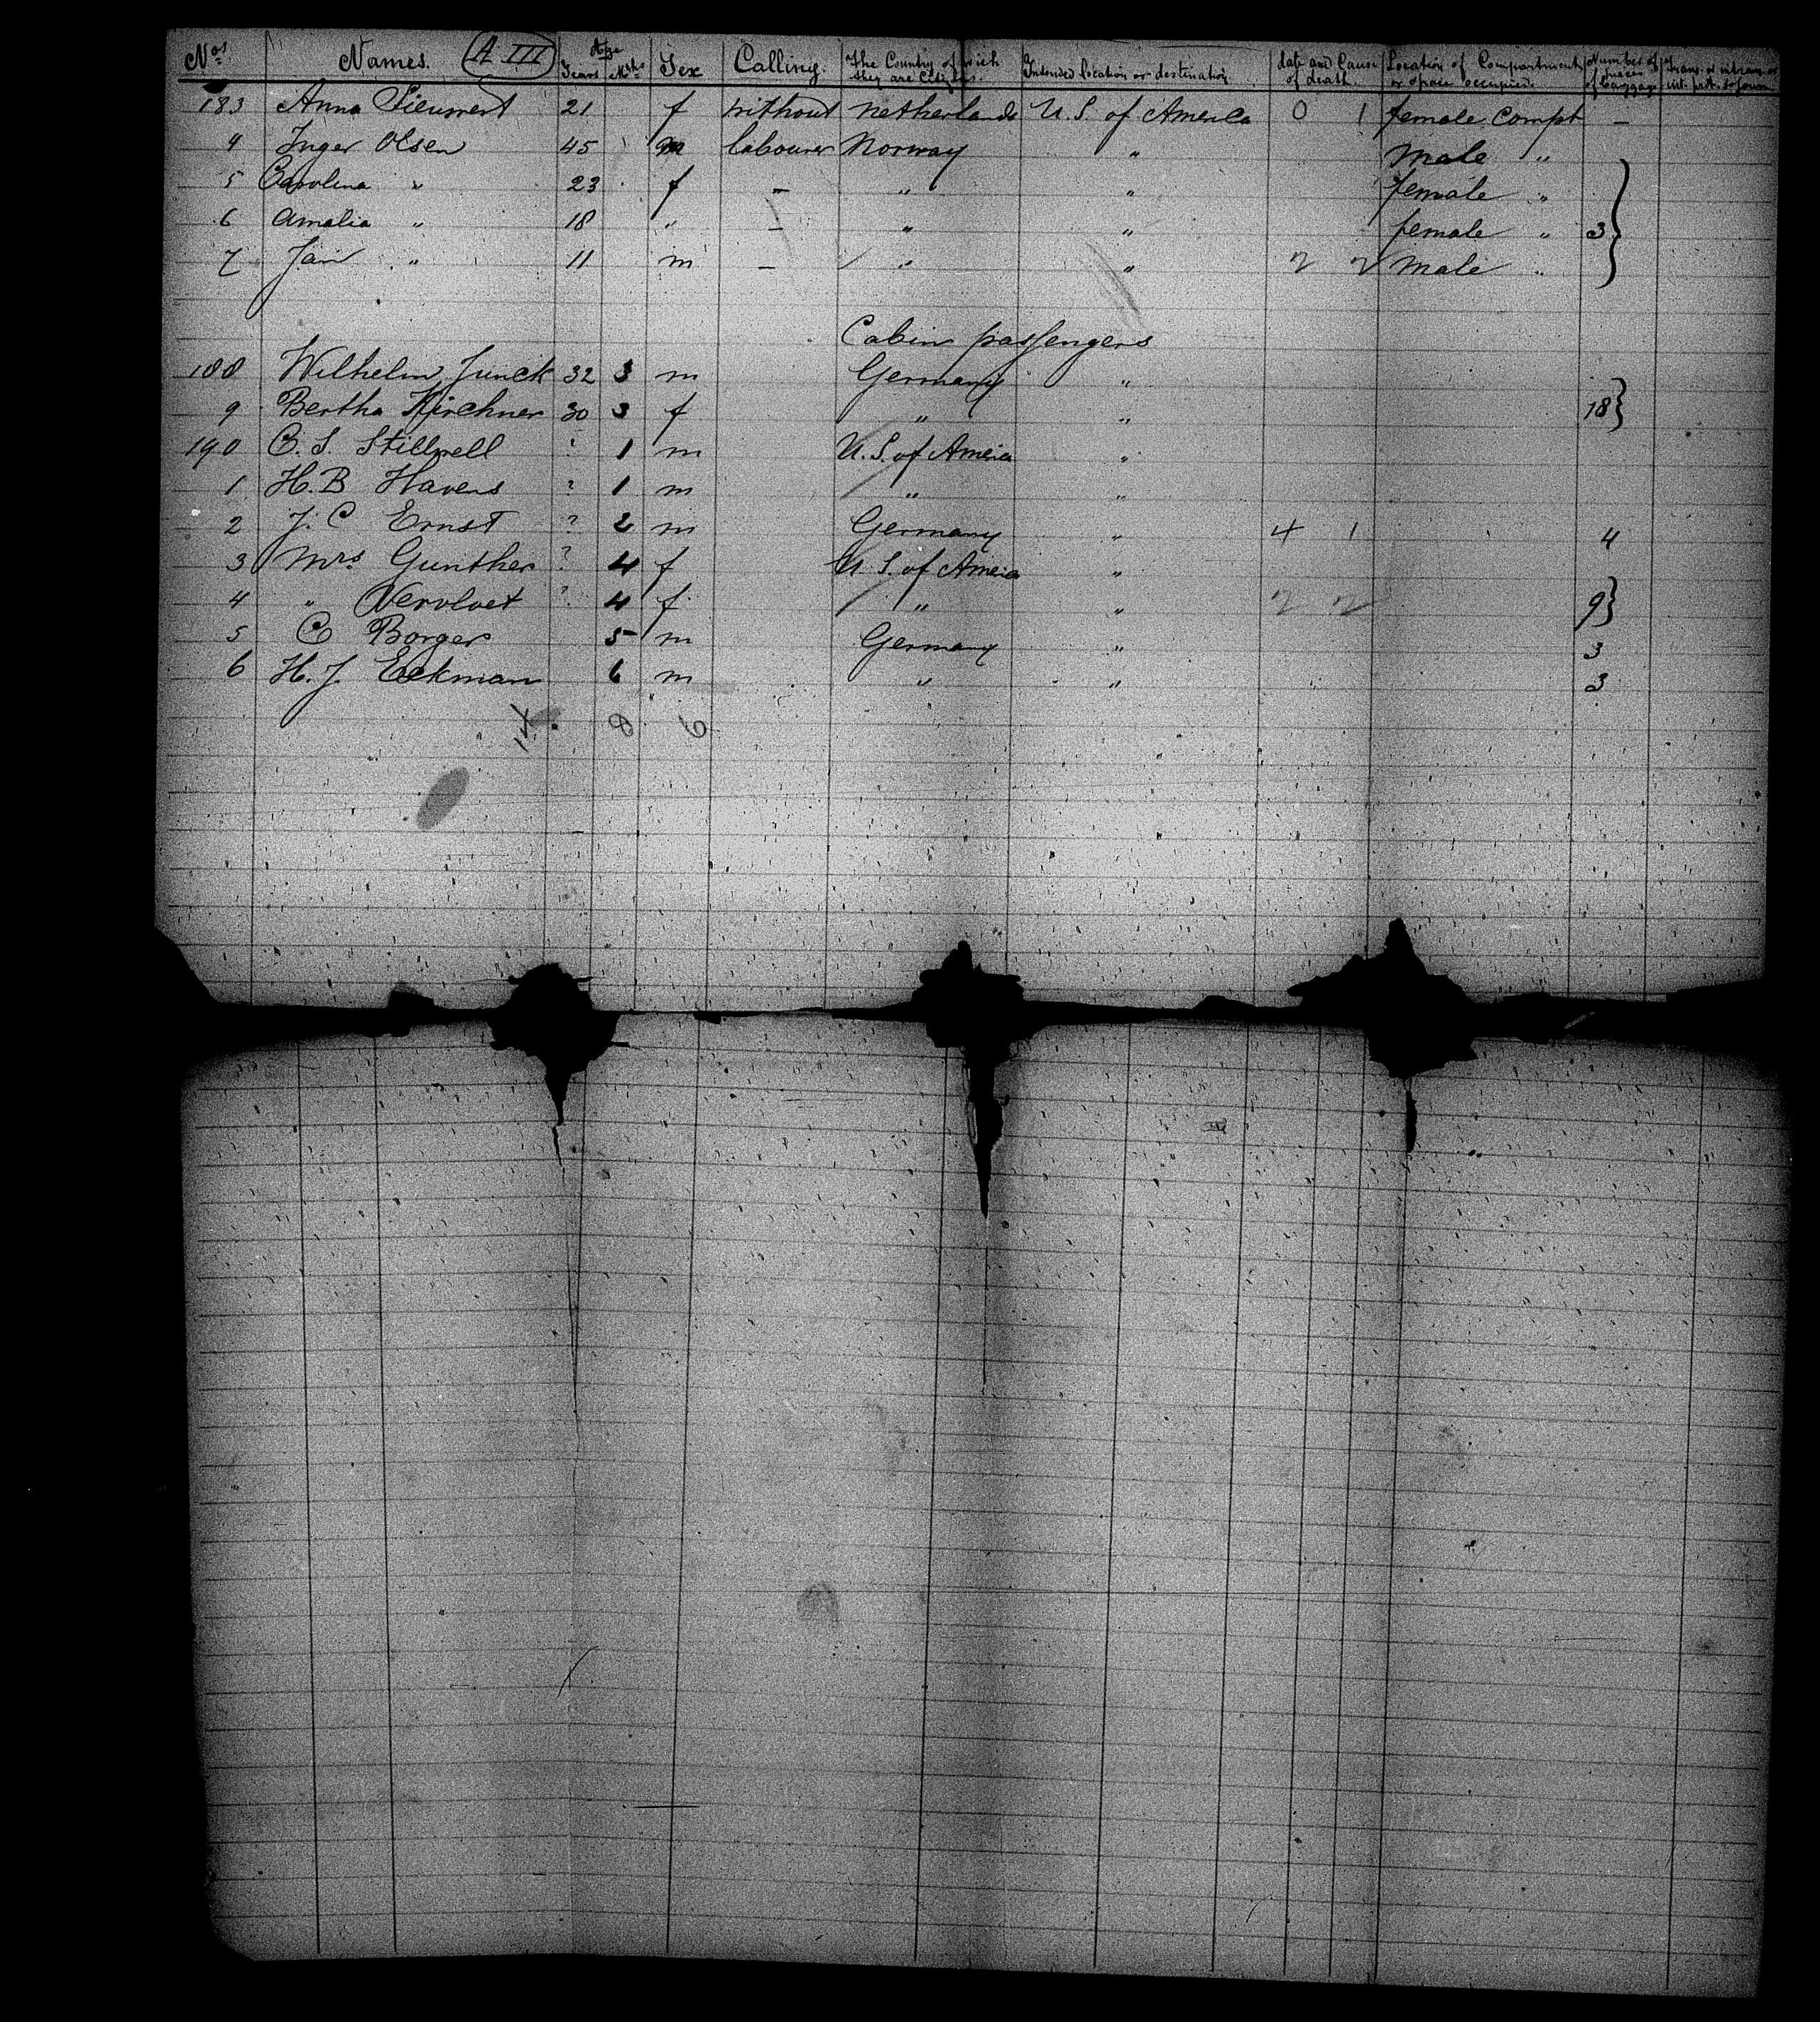 Nos Names. A III Age Years Mths Sex Calling. The Country of which they are Citizens. Intended location or destination date and Cause of death Location of Compartment or space occupied. Number of pieces of Baggage
183 Anna 21 f without Netherlands U.S. of America 0 1 female Compt –
4 Inger Olsen 45 m labourer Norway " male "
5 Carolina " 23 f – " " female "
6 Amalia " 18 " – " " female " 3
7 Jan " 11 m – " " 2 2 male "
Cabin passengers
188 Wilhelm Junck 32 3 m Germany " 18
9 Bertha Kirchner 30 3 f " "
190 C. S. Stillwell ? 1 m U.S. of America "
1 H. B Havens ? 1 m " "
2 J. C Ernst ? 2 m Germany " 4 1 4
3 Mrs Gunther ? 4 f U.S. of America "
4 " Vervloet ? 4 f " " 2 2 9
5 C Borger 5 m Germany " 3
6 H. J. Eekman 6 m " " 3
14 8 6